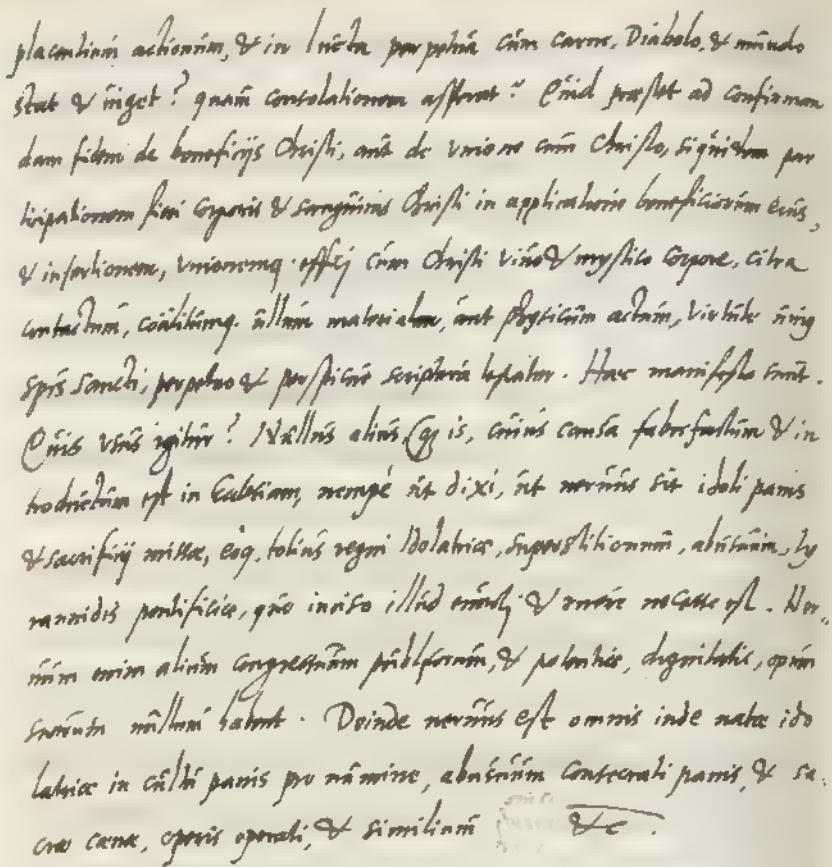 placentium actionum, & in lucta perpetua cum carne, Diabolo, & mundo
stat & viget? quam consolationem afferat? Quid præstet ad confirman
dam fidem de beneficijs Christi, aut de unione cum Christo, siquidem par
ticipationem fieri corporis & sanguinis Christi in applicatione beneficiorum eius,
& insertionem, unionemq. effici cum Christi vivo & mystico corpore, citra
contactum, coalitumq. ullum materialem, aut physicum actum, virtute
spūs sancti, perpetuo & perspicue scriptura testatur. Hæc manifesta sunt.
Quis usus igitur? Nullus alius, q̃ is, cuius causa fabrefactum & in
troductum est in Ecclesiam, nempè ut dixi, ut nervus sit idoli panis
& sacrificij missæ, eoq. totius regni Idolatriæ, superstitionum, abusuum, ty
rannidis pontificiæ, quo inciso illud & ruere necesse est. Ner„
vum enim alium congressuum & potentiæ, dignitatis, opum
suarum nullum habent. Deinde nervus est omnis inde natæ ido
latriæ in cultu panis pro numine, abusuum consecrati panis, & sa„
cræ cænæ, operis operati, & similium &c.